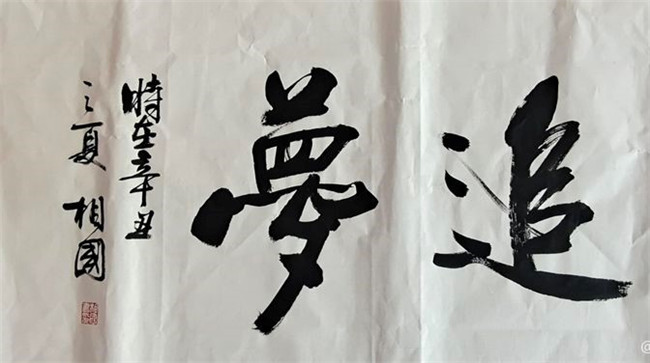 追夢
時在辛丑
之夏 相國